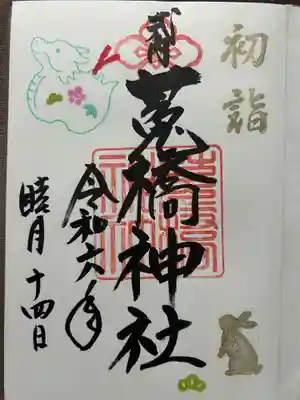 初詣
式内
菟橋神社
令和六年
睦月 十四日